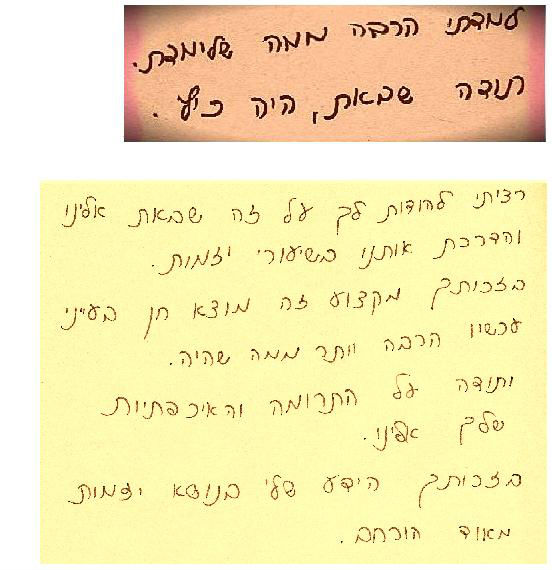 למדתי הרבה ממה שלימדת.
תודה שבאת, היה כיף.
רציתי להודות לך על זה שבאת אלינו
והדרכת אותנו בשיעורי יזמות.
בזכותך מקצוע זה מוצא חן בעייני
עכשיו הרבה יותר ממה שהיה.
ותודה על התרומה והאיכפתיות
שלך אלינו.
בזכותך הידע שלי בנושא יזמות
מאוד הורחב.